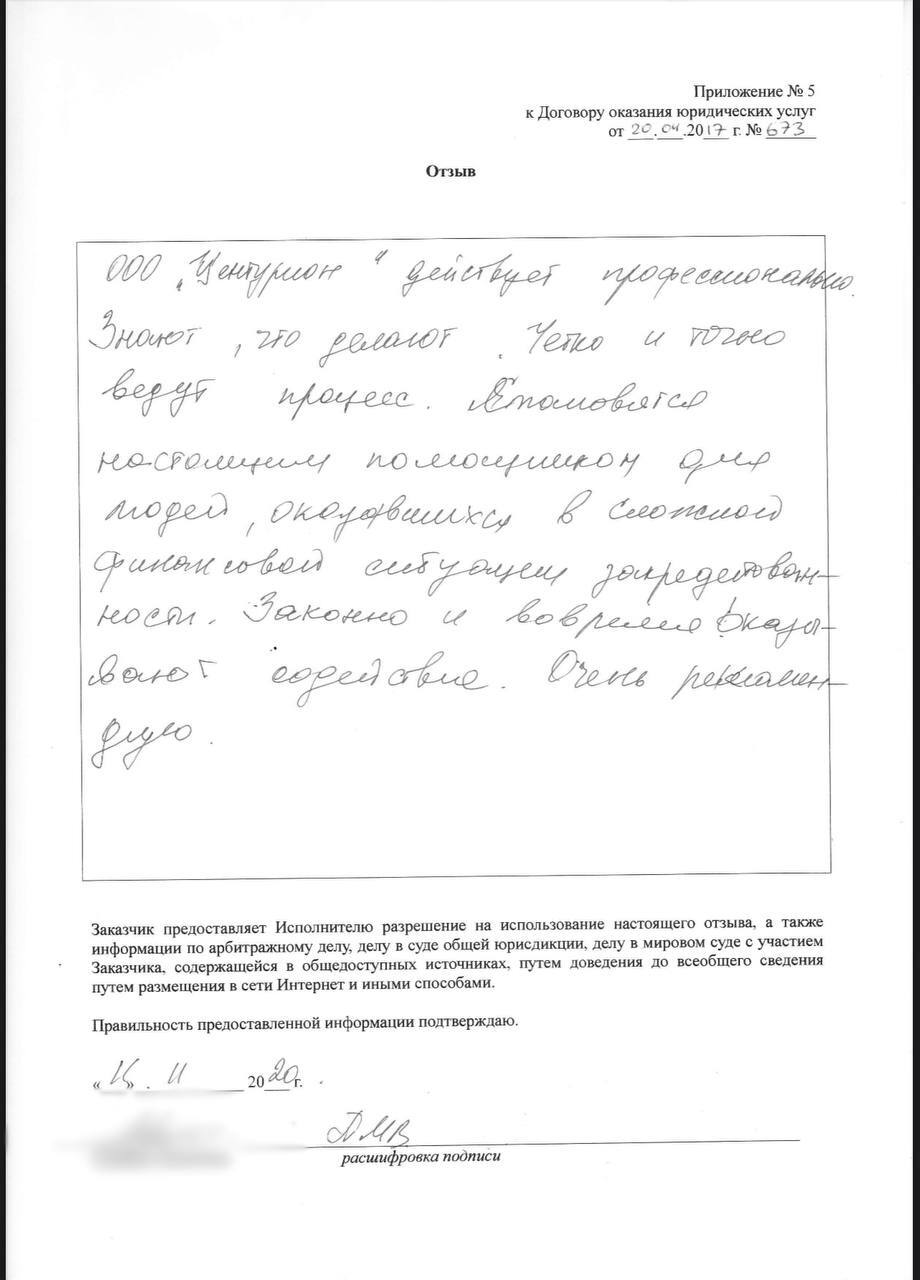 Приложение № 5
к Договору оказания юридических услуг
от 20.04.2017 г. № 673
Отзыв
ООО „Центурион" действует профессионально.
Знают, что делают. Четко и точно
ведут процесс. Становятся
настоящим помощником для
людей, оказавшихся в сложной
финансовой ситуации закредитован-
ности. Законно и вовремя оказы-
вают содействие. Очень рекомен-
дую.
Заказчик предоставляет Исполнителю разрешение на использование настоящего отзыва, а также
информации по арбитражному делу, делу в суде общей юрисдикции, делу в мировом суде с участием
Заказчика, содержащейся в общедоступных источниках, путем доведения до всеобщего сведения
путем размещения в сети Интернет и иными способами.
Правильность предоставленной информации подтверждаю.
« » . 11 2020 г.
ДМВ
расшифровка подписи